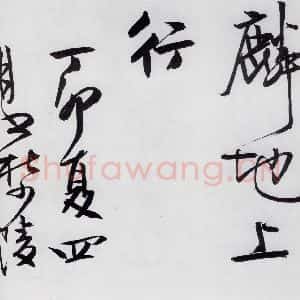 麟地上
行
丁卯夏四
月书陵
Shufawang.cn